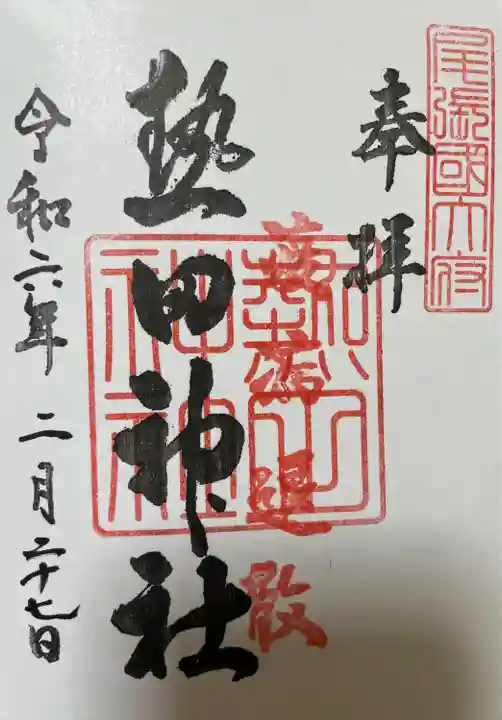 尾張國大府
奉拝
熱田神社
退散
令和六年 二月二十七日